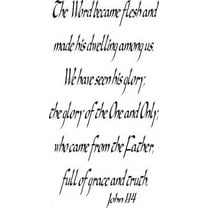 The Word became flesh and
made his dwelling among us.
We have seen his glory,
the glory of the One and Only,
who came from the Father,
full of grace and truth.
John 1:14